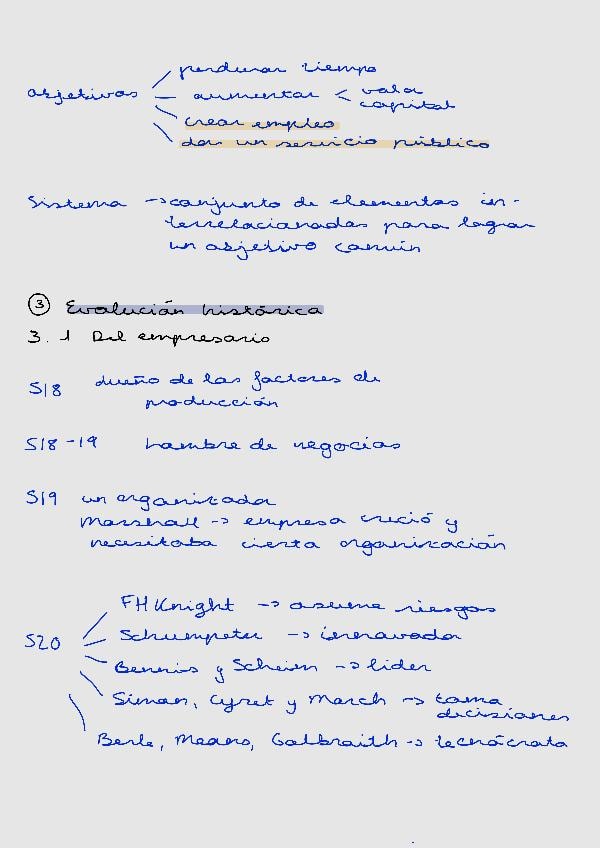 objetivos
perdurar tiempo
aumentar < valor
capital
crear empleo
dar un servicio público
Sistema → conjunto de elementos in-
terrelacionados para lograr
un objetivo común
③ Evolución histórica
3.1 Del empresario
S18 dueño de los factores de
producción
S18-19 hombre de negocios
S19 un organizador
Marshall → empresa creció y
necesitaba cierta organización
S20
FH Knight → asume riesgos
Schumpeter → innovador
Bennis y Schein → lider
Simon, Cyret y March → toma
decisiones
Berle, Means, Galbraith → tecnócrata